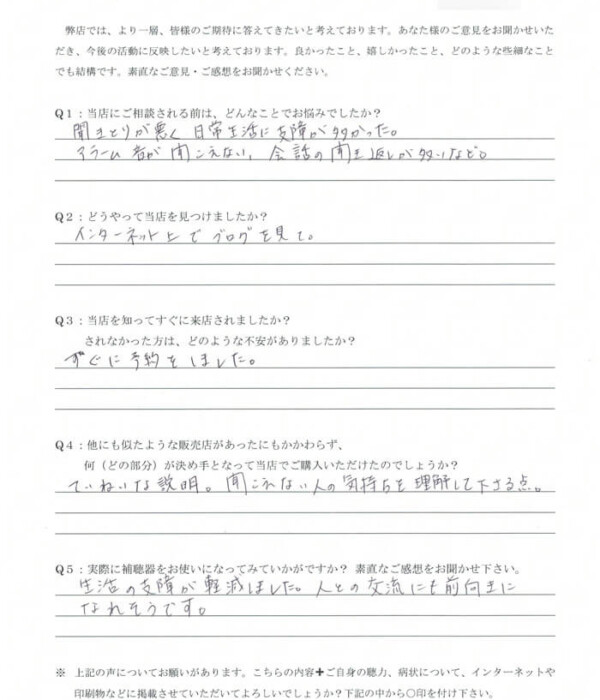 弊店では、より一層、皆様のご期待に答えてきたいと考えております。あなた様のご意見をお聞かせいた
だき、今後の活動に反映したいと考えております。良かったこと、嬉しかったこと、どのような些細なこと
でも結構です。素直なご意見・ご感想をお聞かせください。
Q1：当店にご相談される前は、どんなことでお悩みでしたか？
聞きとりが悪く 日常生活に支障が多かった。
アラーム音が聞こえない、会話の聞き返しが多いなど。
Q2：どうやって当店を見つけましたか？
インターネット上でブログを見て。
Q3：当店を知ってすぐに来店されましたか？
されなかった方は、どのような不安がありましたか？
すぐに予約をしました。
Q4：他にも似たような販売店があったにもかかわらず、
何（どの部分）が決め手となって当店でご購入いただけたのでしょうか？
ていねいな説明。聞こえない人の気持ちを理解して下さる点。
Q5：実際に補聴器をお使いになってみていかがですか？ 素直なご感想をお聞かせ下さい。
生活の支障が軽減しました。人との交流にも前向きに
なれそうです。
※ 上記の声についてお願いがあります。こちらの内容✚ご自身の聴力、病状について、インターネットや
印刷物などに掲載させていただいてよろしいでしょうか？下記の中から○印を付け下さい。